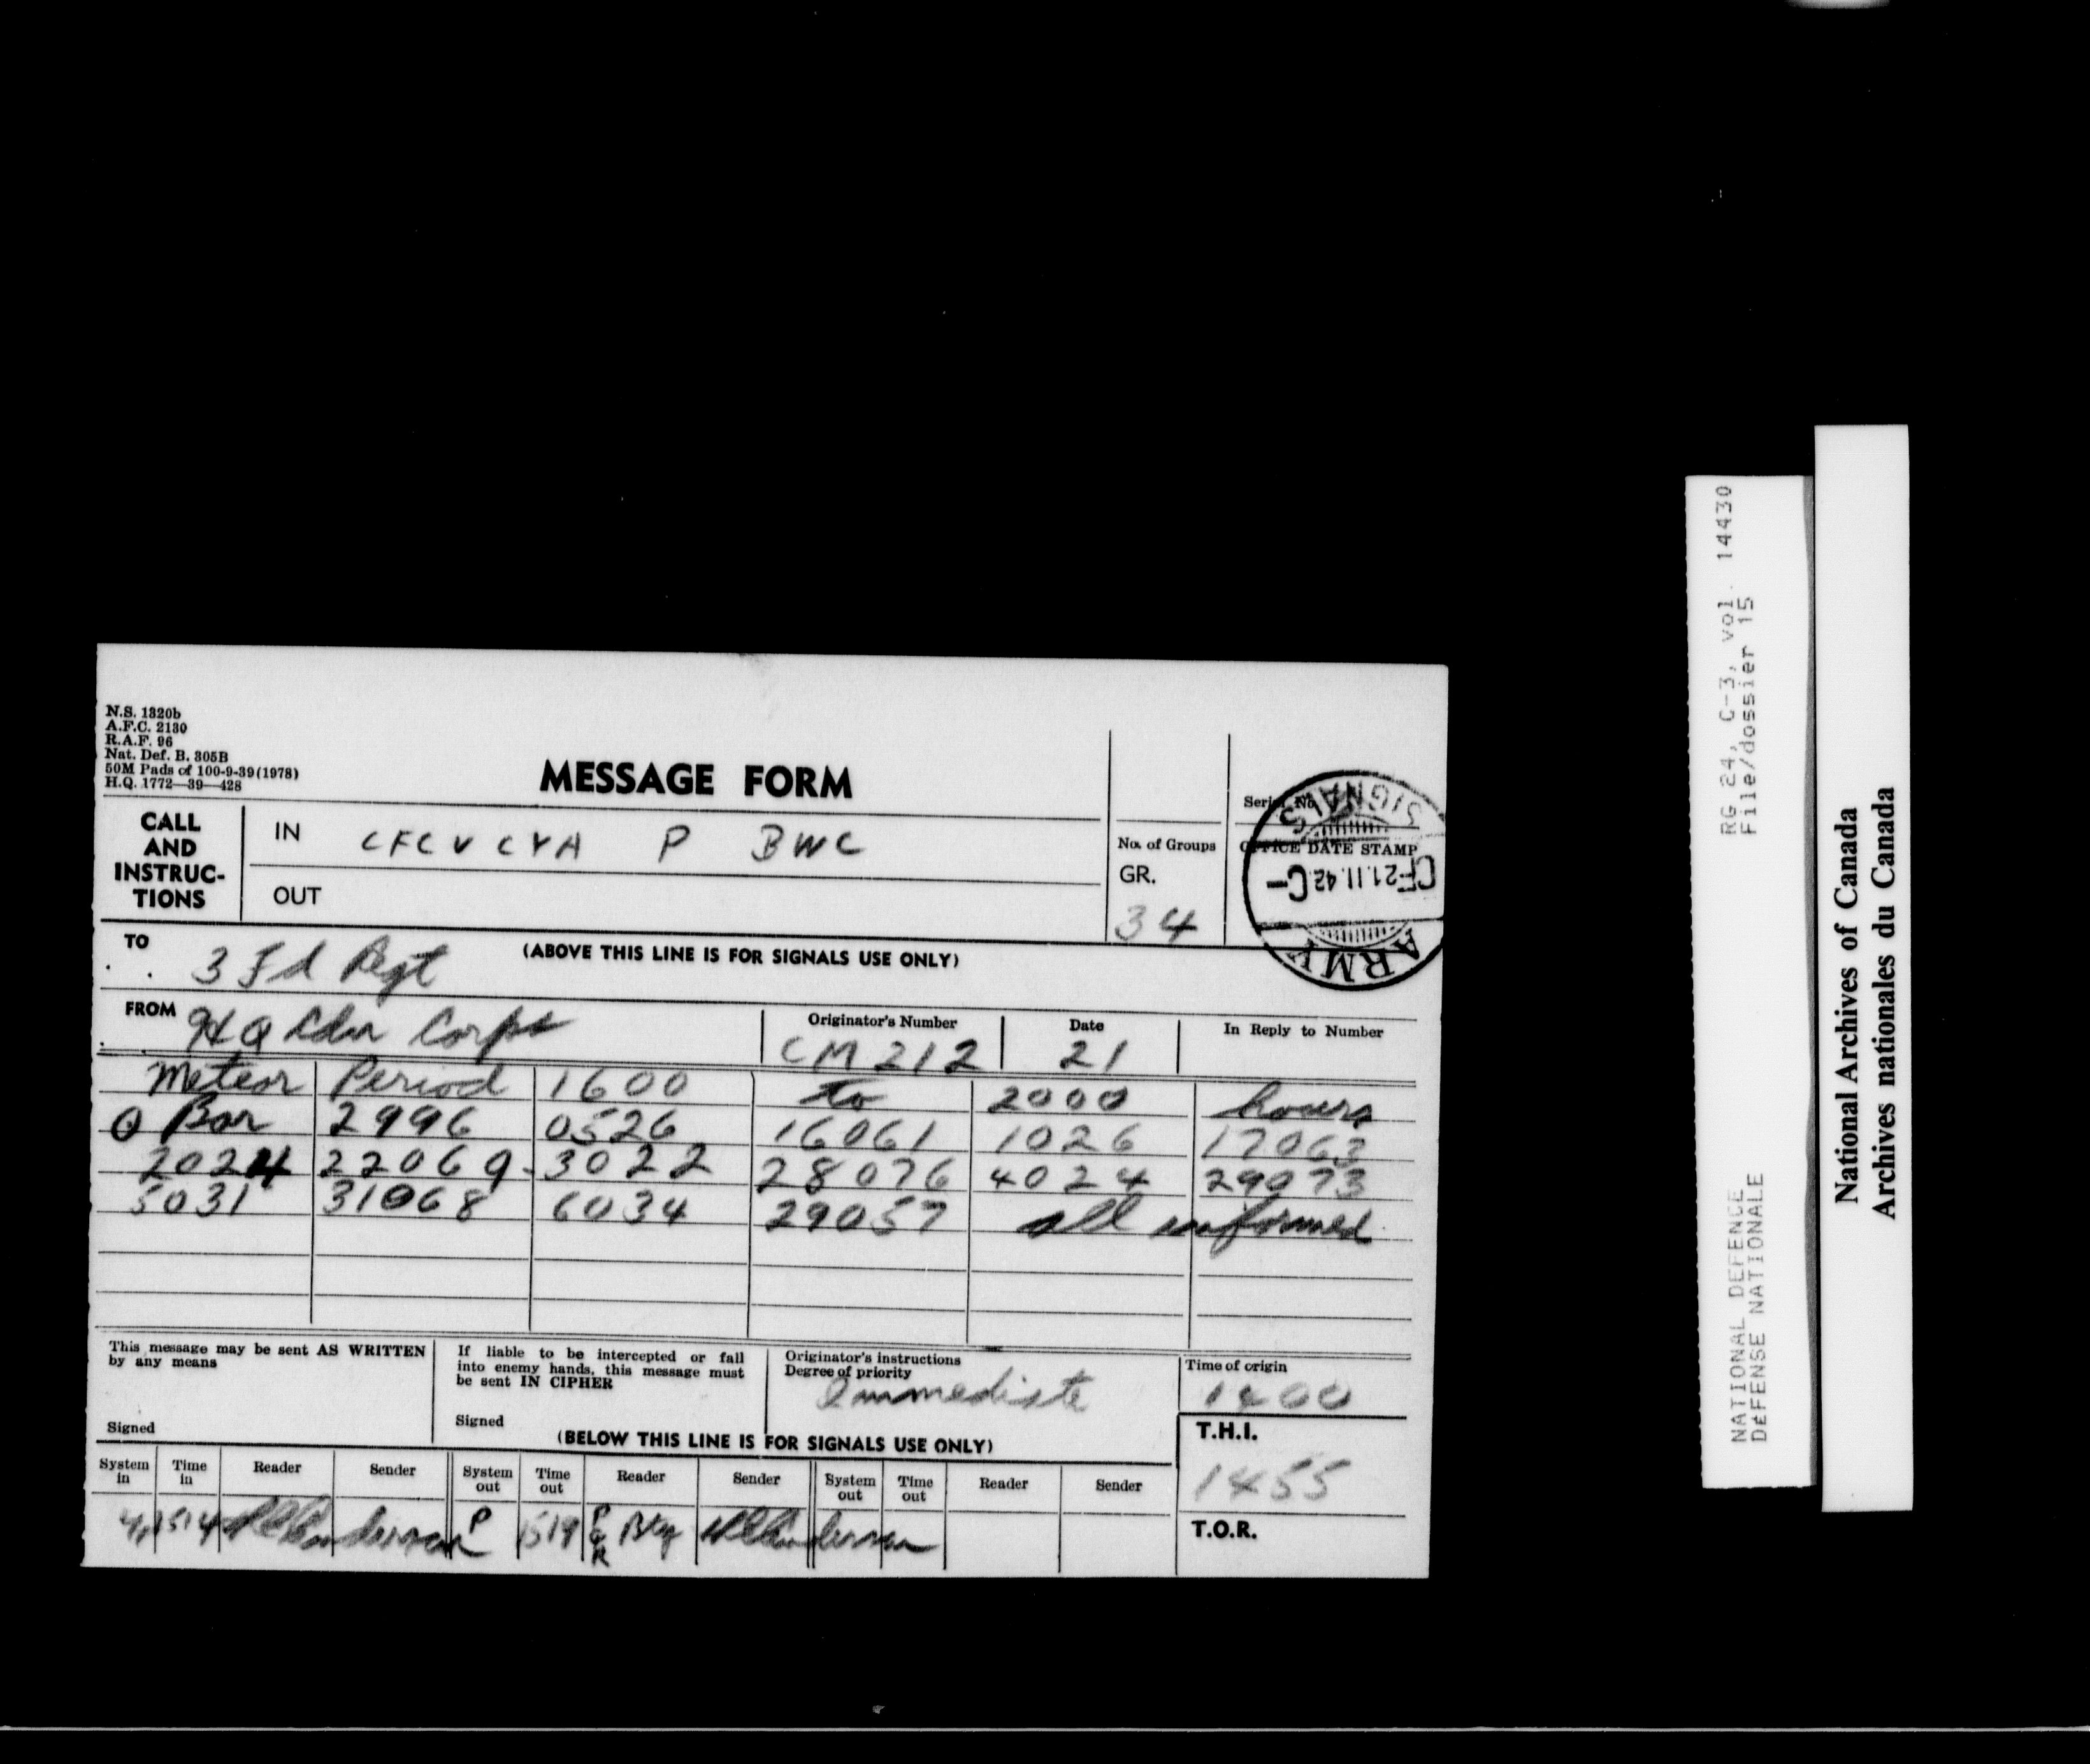 N.S. 1320b
A.F.C. 2130
R.A.F. 96
Nat. Def. B. 305B
50M Pads of 100-9-39(1978)
H.Q. 1772—39—428
MESSAGE FORM
CALL AND INSTRUC-TIONS
IN CFCV CYA P BWC
OUT
No. of Groups
GR.
34
Serial No.
OFFICE DATE STAMP
ARMY SIGNALS
CF 21.11.42 C-
TO 3 Fd Regt
(ABOVE THIS LINE IS FOR SIGNALS USE ONLY)
FROM HQ Cdn Corps
Originator's Number CM 212
Date 21
In Reply to Number
Meteor Period 1600 to 2000 hours
O Bar 2996 0526 16061 1026 17063
2024 22069 3022 28076 4024 29073
5031 31068 6034 29057 all informed
This message may be sent AS WRITTEN
by any means
Signed
If liable to be intercepted or fall
into enemy hands, this message must
be sent IN CIPHER
Signed
Originator's instructions
Degree of priority
Immediate
Time of origin
1400
(BELOW THIS LINE IS FOR SIGNALS USE ONLY)
T.H.I.
1455
T.O.R.
System in Time in Reader Sender System out Time out Reader Sender System out Time out Reader Sender
1514 P 1519 Bty
RG 24, C-3, vol. 14430
File/dossier 15
NATIONAL DEFENCE
DÉFENSE NATIONALE
National Archives of Canada
Archives nationales du Canada